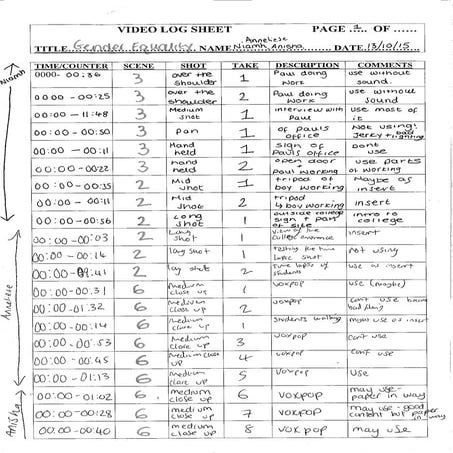 VIDEO LOG SHEET PAGE 1 OF
Anneliese
TITLE Gender Equality NAME Niamh, Anisha DATE 13/10/15
TIME/COUNTER SCENE SHOT TAKE DESCRIPTION COMMENTS
Niamh
0000- 00:36 3 over the shoulder 1 Paul doing work use without sound.
0000 - 00:25 3 over the shoulder 2 Paul doing work use without sound
00:00 - 11:48 3 Medium shot 1 interview with Paul use most of it
00:00 - 00:50 3 Pan 1 of Pauls office Not using: Jerky + bad lighting
00:00 - 00:11 3 Hand held 1 sign of Pauls office Dont use
00:00 - 0022 3 hand held 2 open door + Paul working use parts of
00:00 - 00:35 2 Mid shot 1 tripod of boy working Maybe as insert
00:00 - 00:11 2 Mid shot 2 tripod boy working insert
00:00 - 00:56 2 Long shot 1 outside college sign + part of site intro to college
Anneliese
00:00 - 00:03 2 Long shot 1 view of the college entrance insert
00:00 - 00:14 2 long shot 1 testing the time lapse shot Not using
00:00 - 09:41 2 long shot 2 time lapse of students use as insert
00:00 - 00:31 6 medium close up 1 voxpop use (maybe)
00:00 - 01:32 6 medium close up 2 voxpop Can't use
00:00 - 00:14 6 Medium close up 1 students walking might use as insert
00:00 - 00:53 6 medium close up 3 voxpop Can't use
00:00 - 00:45 6 medium close up 4 voxpop Can't use
00:00 - 01:13 6 medium close up 5 voxpop Use
Anisha
00:00 - 01:02 6 medium close up 6 voxpop may use - paper in way
00:00 - 00:28 6 medium close up 7 voxpop may use - good content but paper in way
00:00 - 00:40 6 medium close up 8 voxpop may use